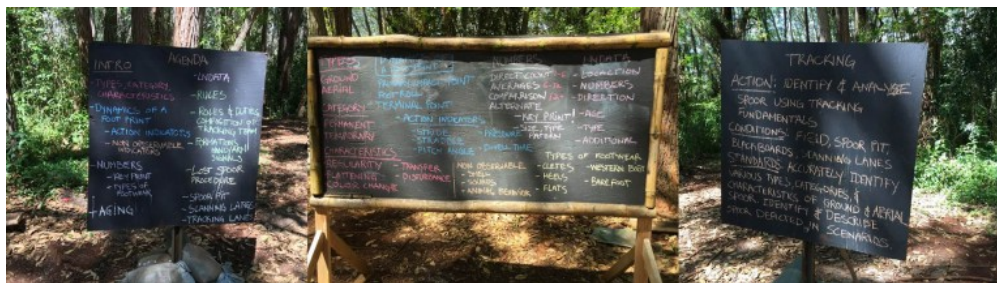 AGENDA
INTRO
TYPES, CATEGORY
CHARACTERISTICS
-DYNAMICS OF A
FOOT PRINT
-ACTION INDICATORS
-NON OBSERVABLE
INDICATORS
-NUMBERS
-KEY PRINT
-TYPES OF
FOOTWEAR
+AGING
-LNDATA
-RULES
-ROLES & DUTIES
COMPOSITION OF
TRACKING TEAM
-FORMATIONS
SIGNALS
-LOST SPOOR
PROCEDURE
-SPOOR PIT
-SCANNING LANES
-TRACKING LANES
TYPES
GROUND
AERIAL
CATEGORY
PERMANENT
TEMPORARY
CHARACTERISTICS
REGULARITY
FLATTENING
COLOR CHANGE
-TRANSFER
-DISTURBANCE
FOOT ROLL
TERMINAL POINT
-ACTION INDICATORS
-STRIDE
-STRADDLE
-PITCH ANGLE
-PRESSURE
-DWELL TIME
NON OBSERVABLE
-TOUCH
-SOUND
-ANIMAL BEHAVIOR
NUMBERS
DIRECT COUNT
AVERAGES
COMPARISON
ALTERNATE
-KEY PRINT
-SIZE, TYPE
PATTERN
TYPES OF FOOTWEAR
-CLEATES
-HEELS
-FLATS
-WESTERN BOOT
-BAREFOOT
LNDATA
-LOCATION
-NUMBERS
-DIRECTION
-AGE
-TYPE
-ADDITIONAL
TRACKING
ACTION: IDENTIFY & ANALYSE
SPOOR USING TRACKING
FUNDAMENTALS
CONDITIONS: SPOOR PIT,
BLACKBOARDS, SCANNING LANES
STANDARDS: ACCURATELY IDENTIFY
VARIOUS TYPES, CATEGORIES, &
CHARACTERISTICS OF GROUND & AERIAL
SPOOR IDENTIFY & DESCRIBE
SPOOR DEPICTED IN SCENARIOS.